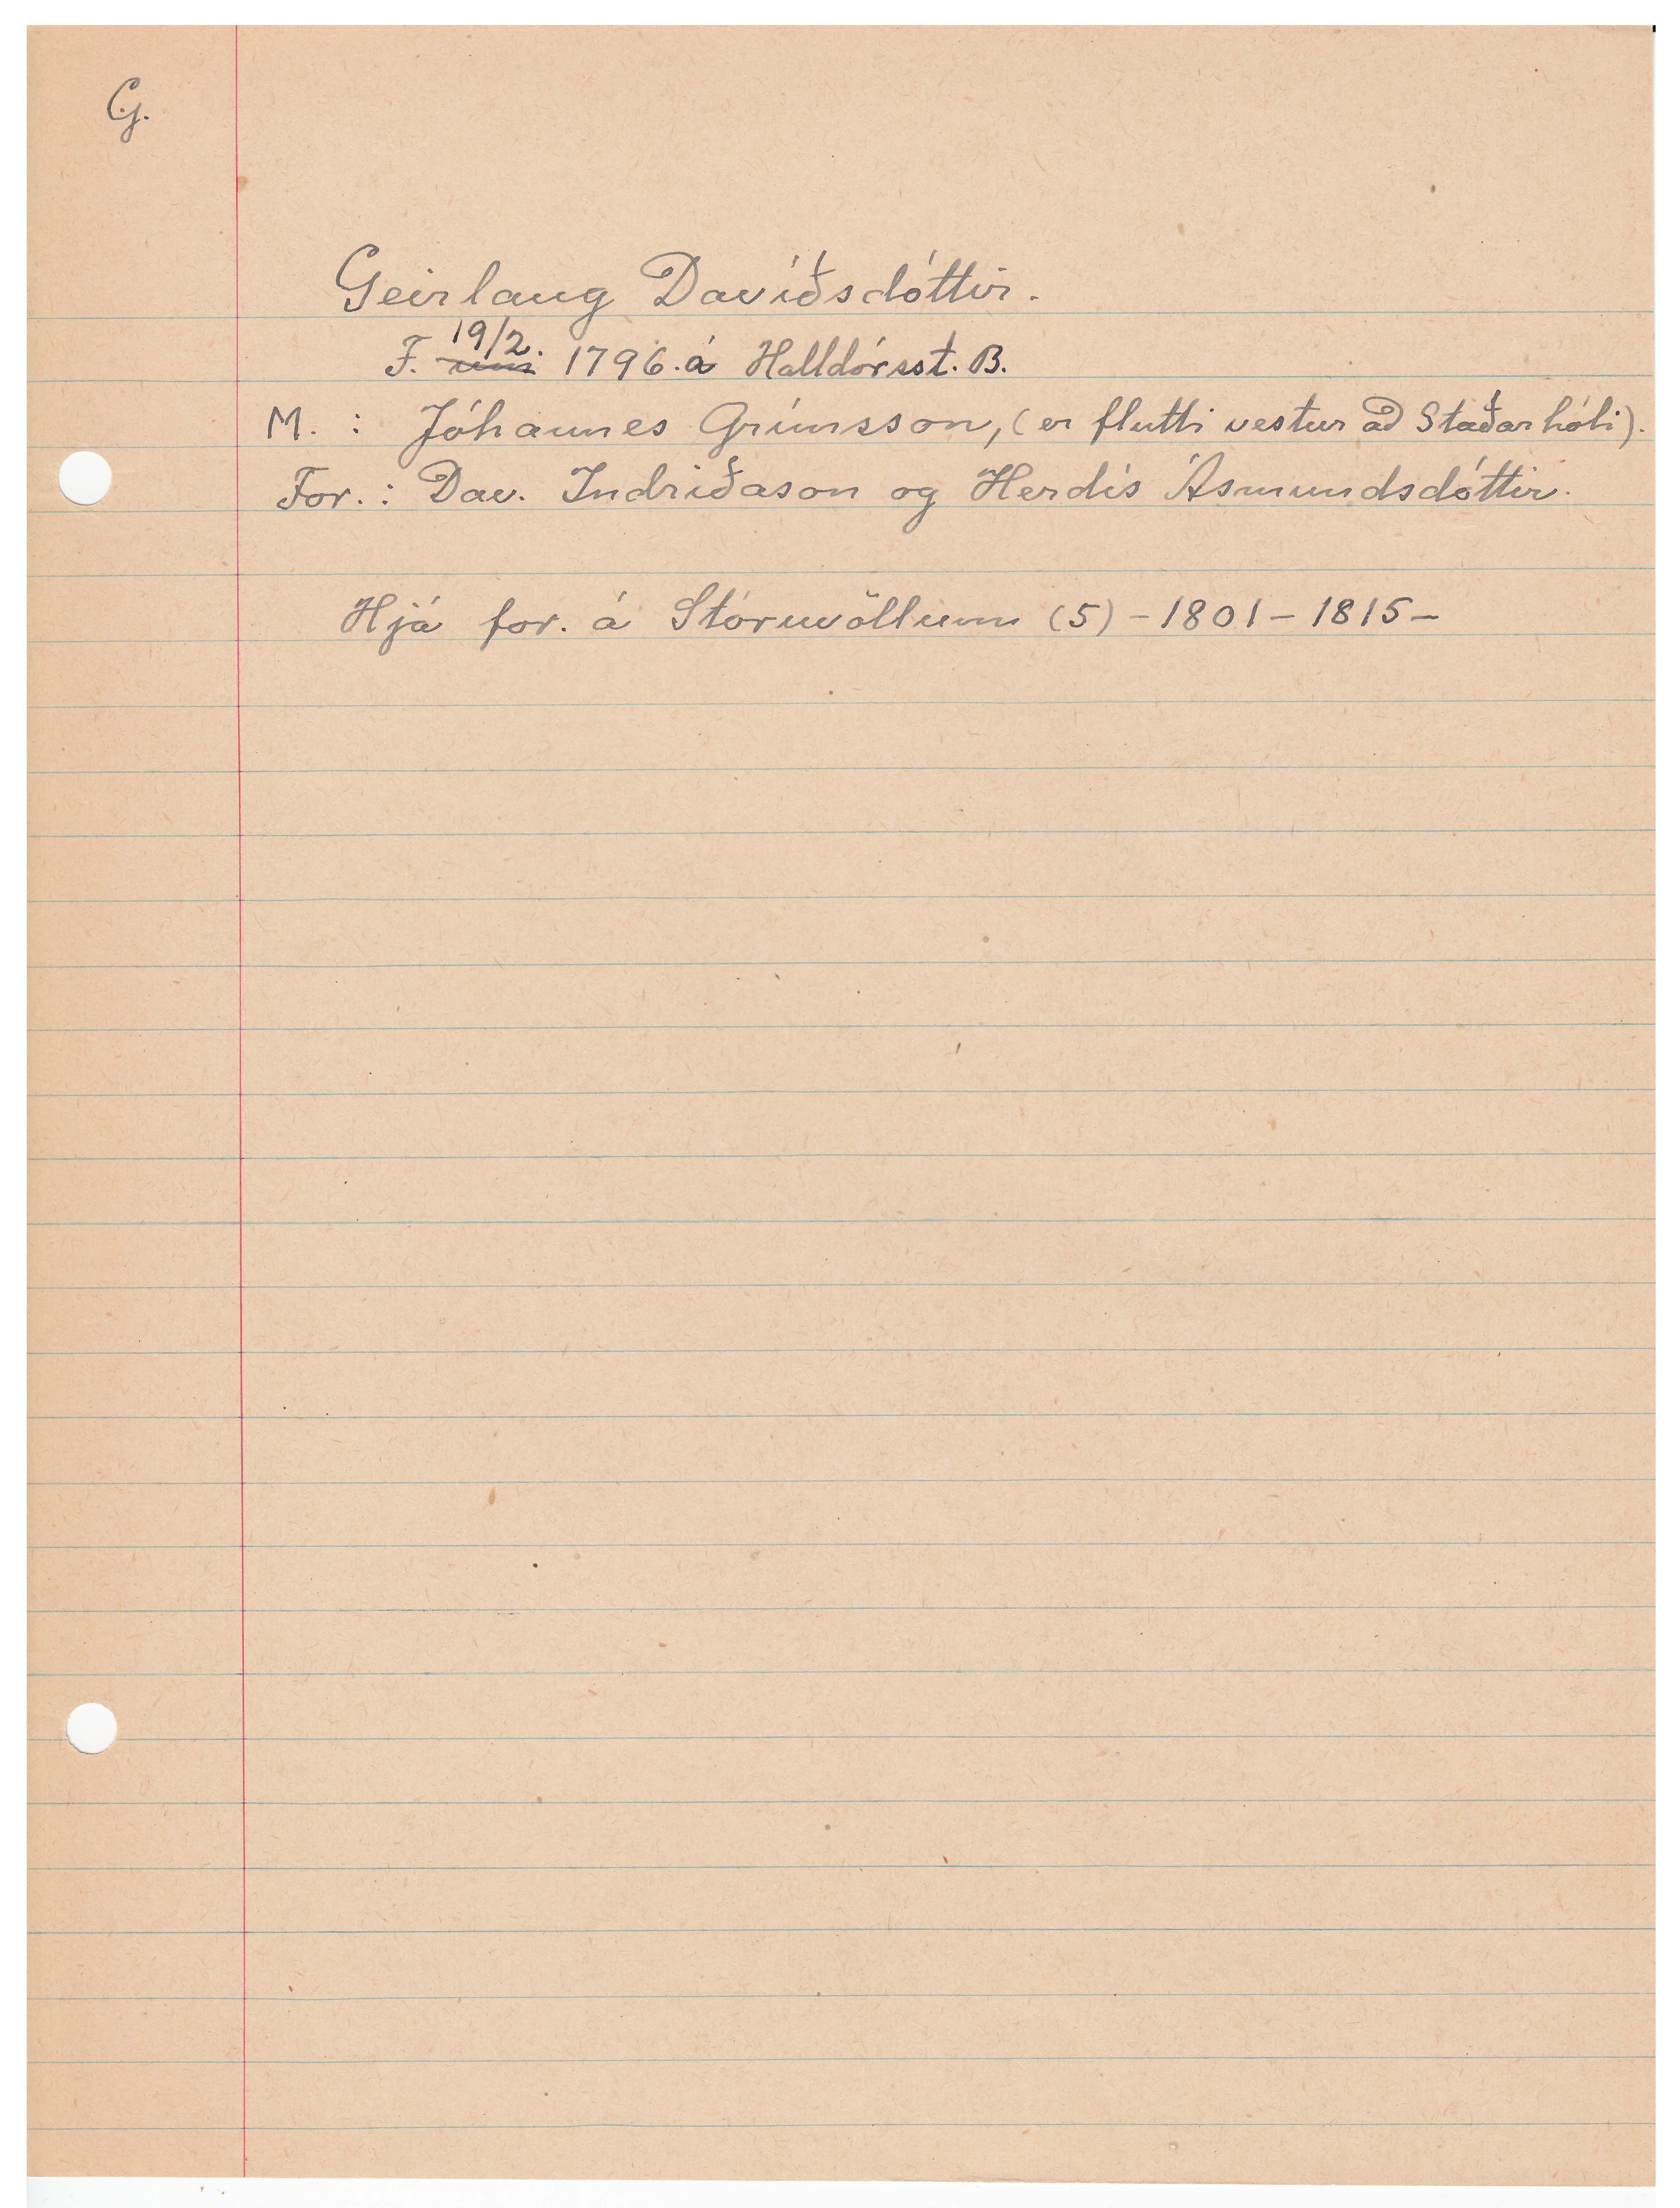 G.
Geirlaug Davíðsdóttir.
F. um 19/2. 1796. á Halldórsst. B.
M. : Jóhannes Grímsson, (er flutti vestur að Staðarhóli).
For. : Dav. Indriðason og Herdís Ásmundsdóttir.
Hjá for. á Stóruvöllum (5) - 1801 - 1815 -